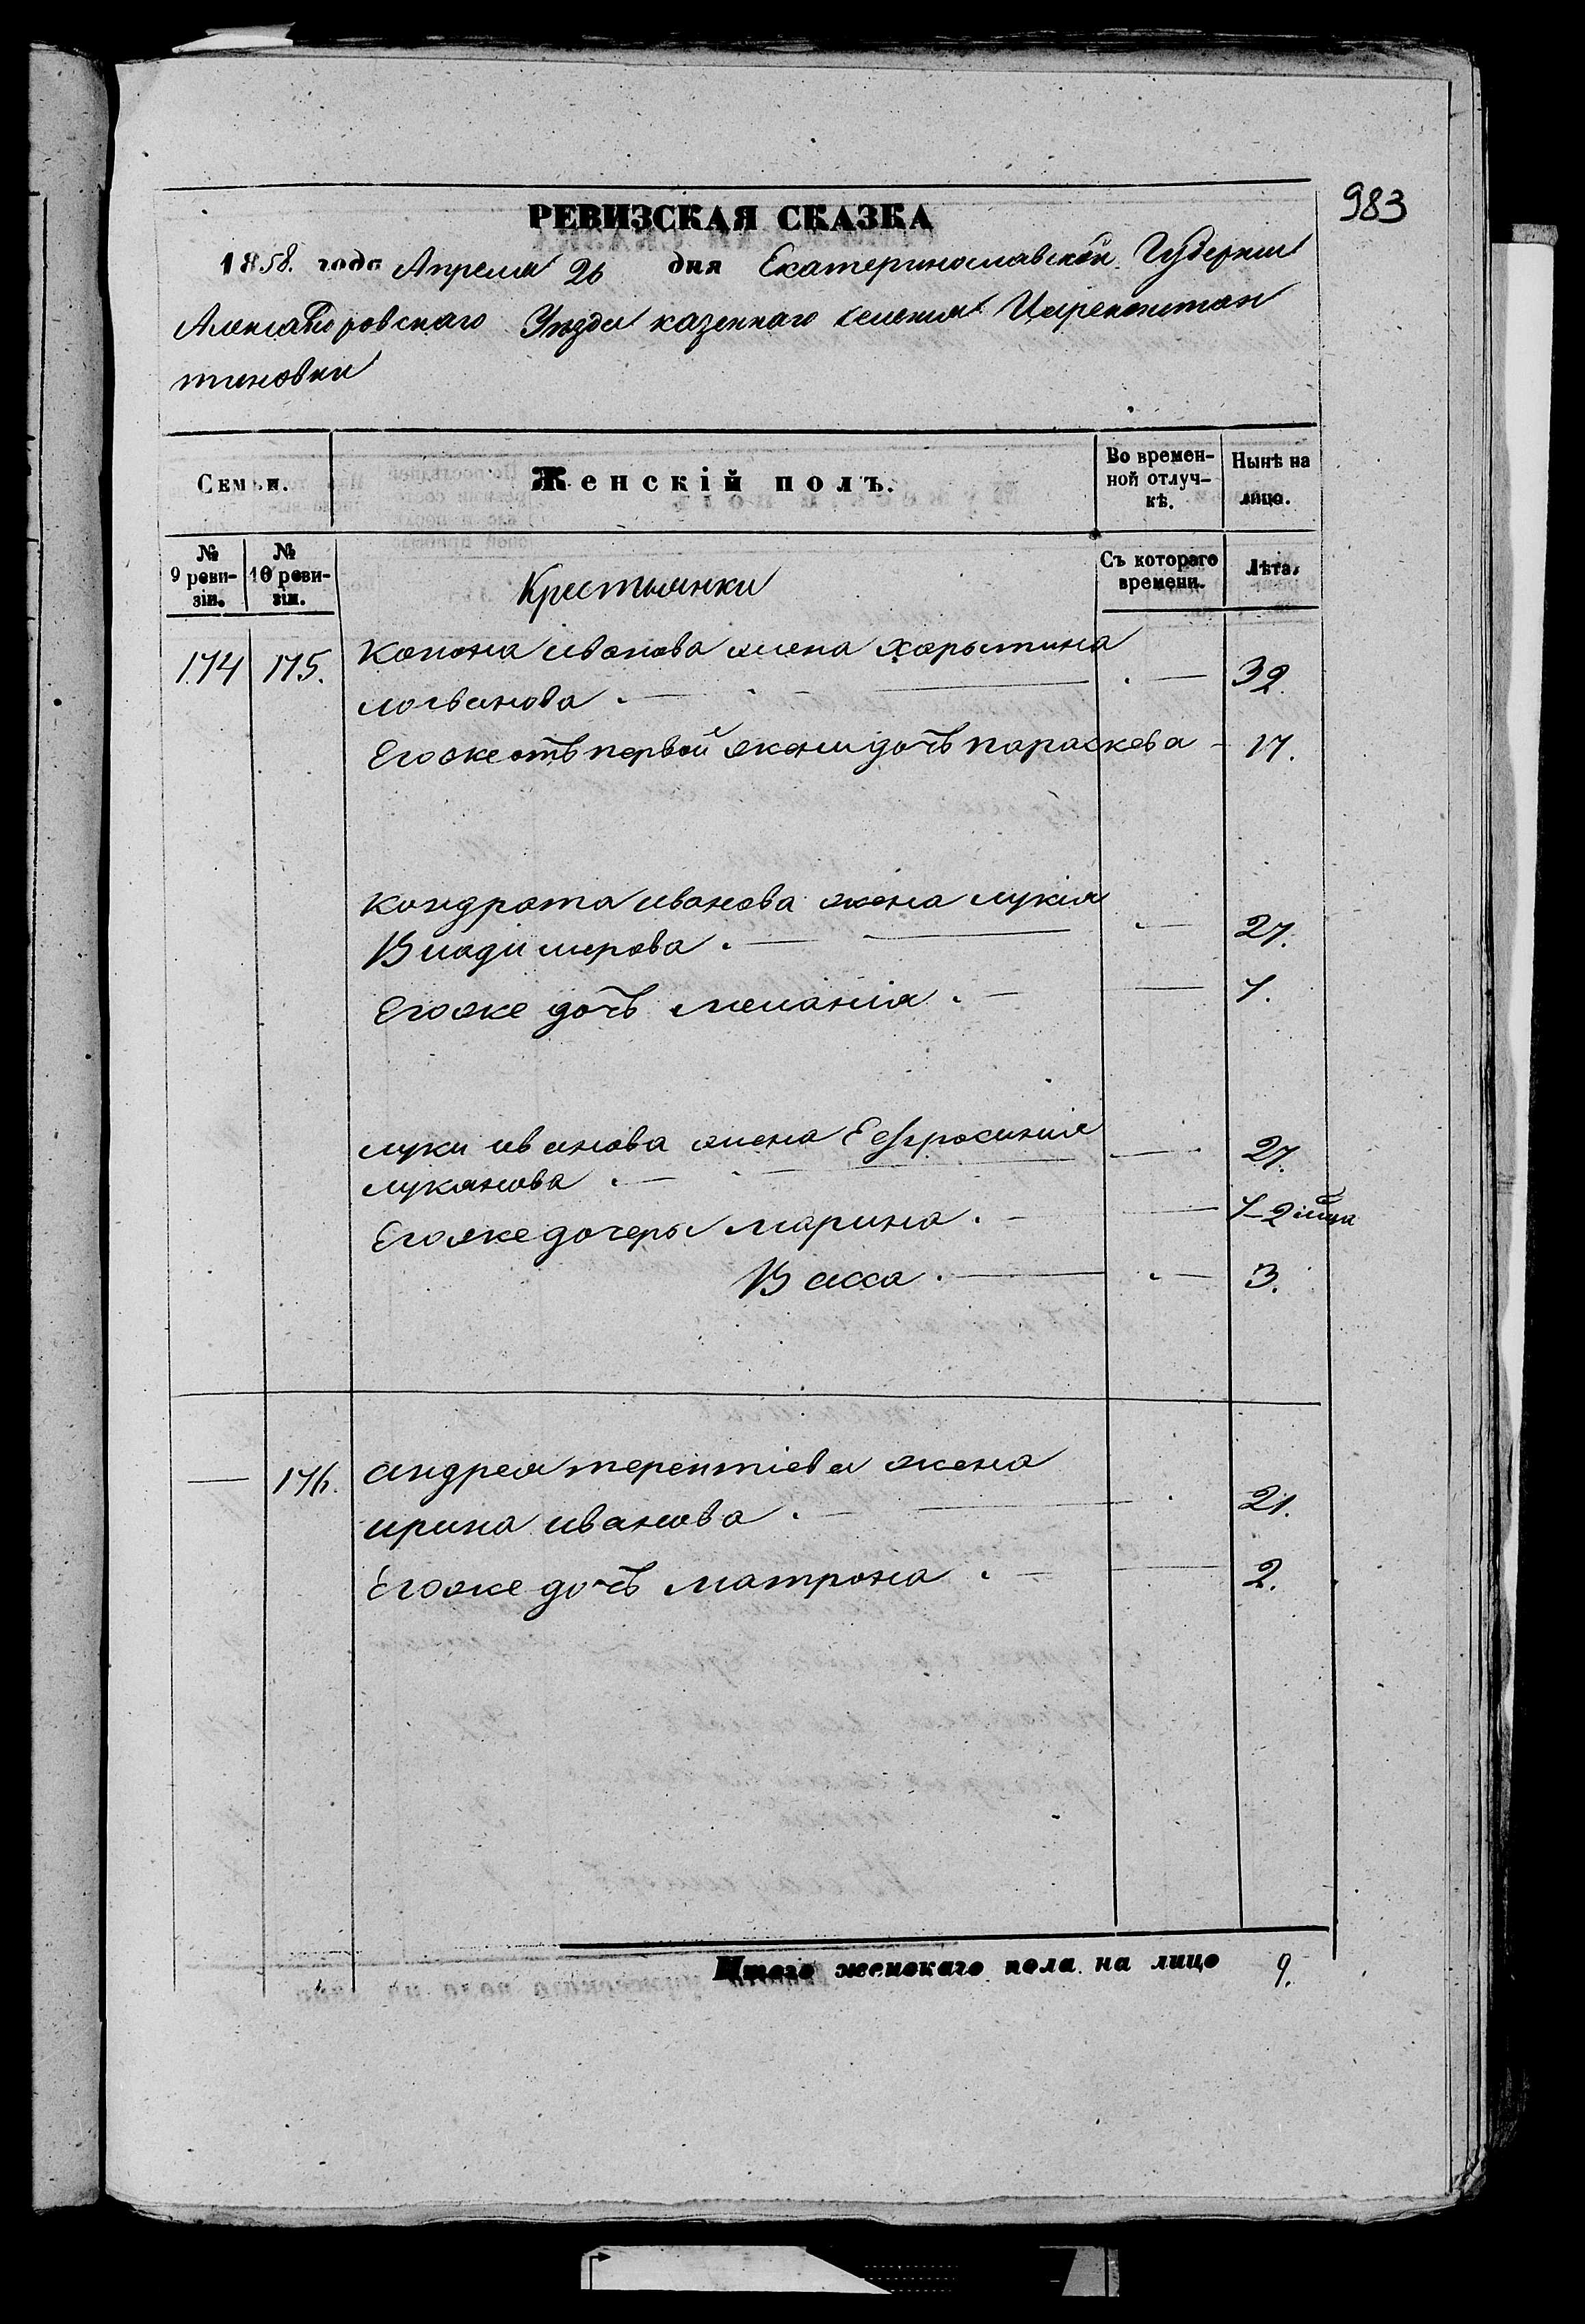 983
РЕВИЗСКАЯ СКАЗКА
1858. года Апреля 26 дня Екатеринославской Губернии
Александровскаго Уезда казеннаго селения Цареконстан
тиновки
Семьи.
Женскій полъ.
Во времен-
ной отлуч-
кѣ.
Нынѣ на
лицо.
№
9 реви-
зіи.
№
10 реви-
зіи.
Съ котораго
времени.
Лѣта.
Крестьянки
174 175. Конона иванова жена харытина
логвинова . — 32.
Егоже отъ первой жены дочь параскева - 17.
Кондрата иванова жена лукія
Владимерова . — 27.
Егоже дочь меланія . — 7.
луки иванова жена Ефросинія
лукянова . — 27.
Егоже дочеры марина . — 7-2 мца
Васса . — 3.
— 176. андрея терентіева жена
ирина иванова . — 21.
Егоже дочь матрона . — 2.
Итого женскаго пола на лицо 9.